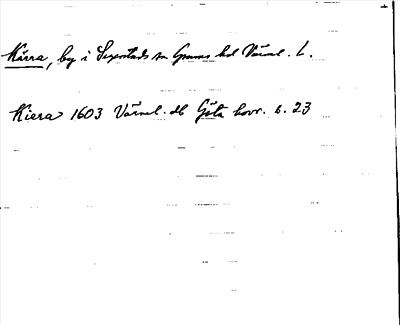 Kärra, by i Segerstads sn Grums hd Värml. L.
Kiera 1603 Värml. db Göta hovr. s. 23